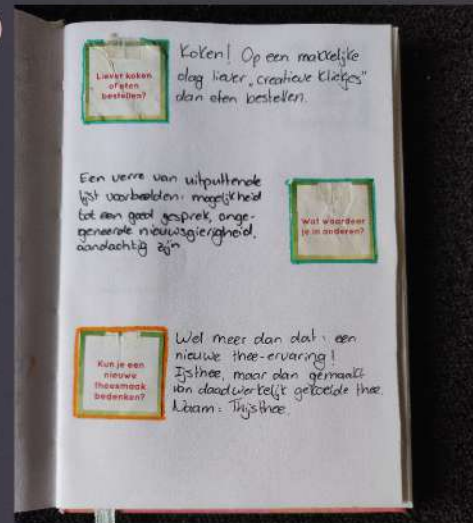 Liever koken
of eten
bestellen?
Koken! Op een makkelijke
dag liever „creatieve kliekjes"
dan eten bestellen.
Een verre van uitputtende
lijst voorbeelden: mogelijkheid
tot een goed gesprek, onge-
geneerde nieuwsgierigheid,
aandachtig zijn
Wat waardeer
je in anderen?
Kun je een
nieuwe
theesmaak
bedenken?
Wel meer dan dat: een
nieuwe thee-ervaring!
Ijsthee, maar dan gemaakt
van daadwerkelijk gekoelde thee.
Naam: Thijsthee.